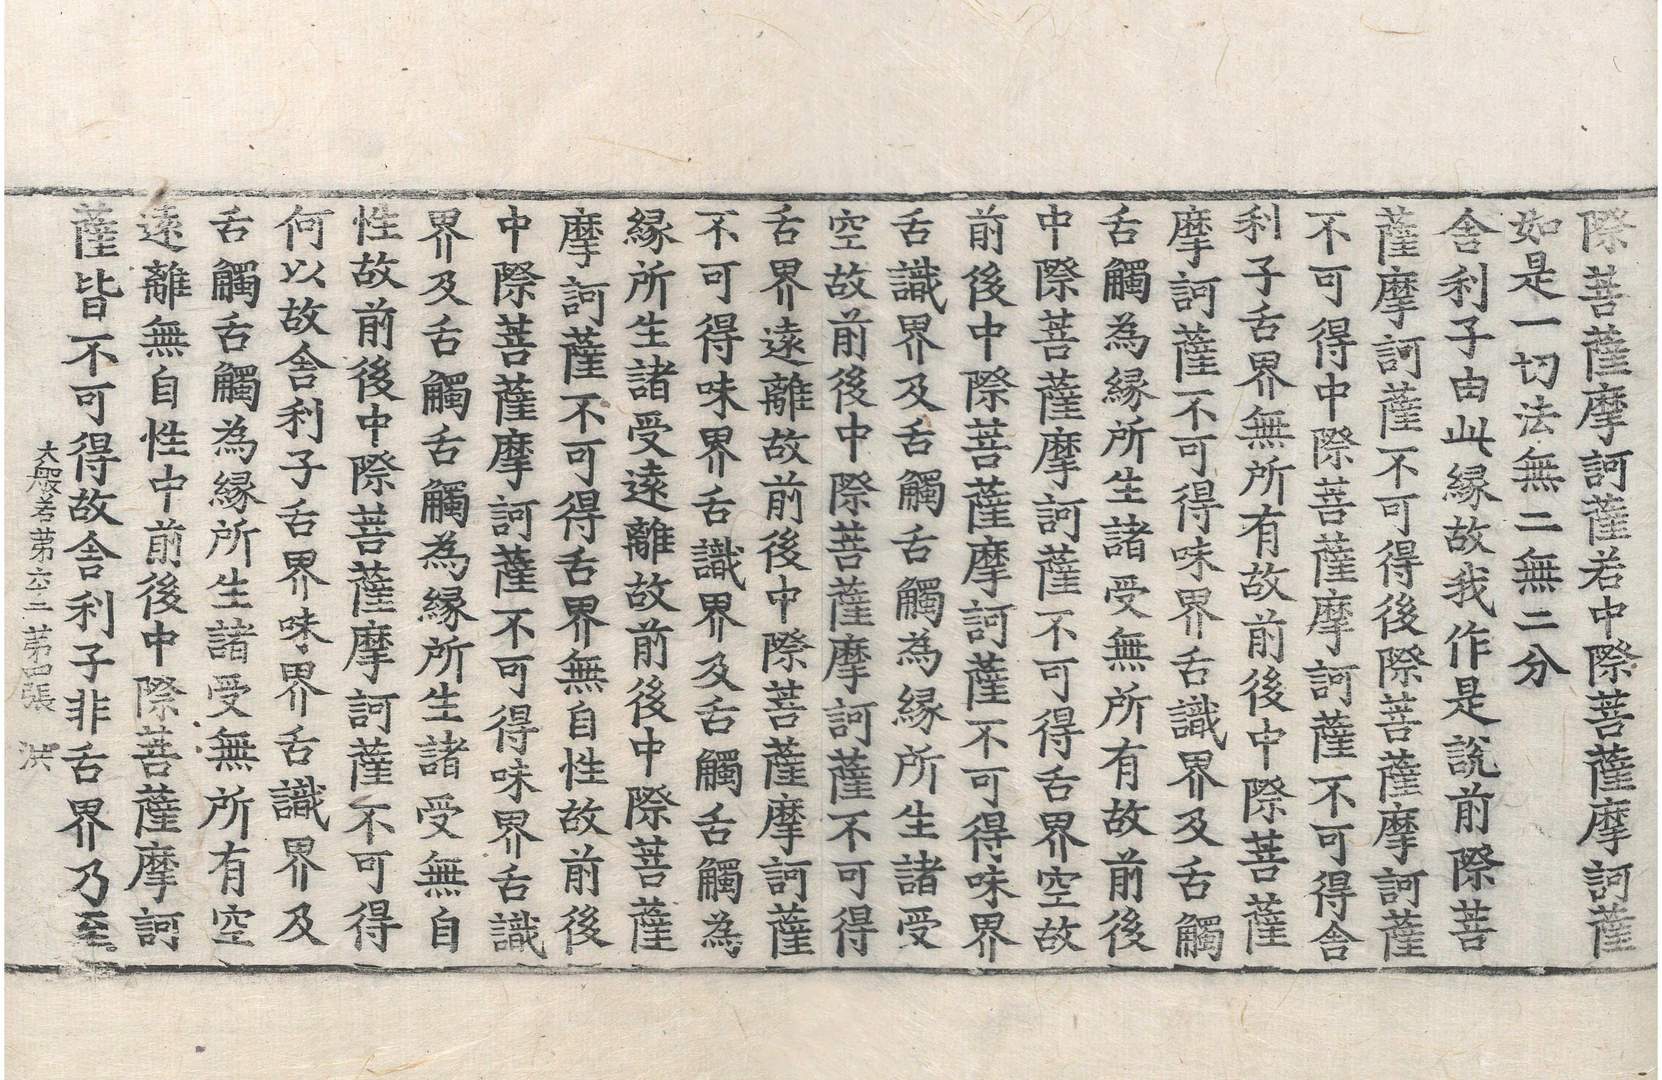 際菩薩摩訶薩若中際菩薩摩訶薩
如是一切法無二無二分
舍利子由此縁故我作是說前際菩
薩摩訶薩不可得後際菩薩摩訶薩
不可得中際菩薩摩訶薩不可得舍
利子舌界無所有故前後中際菩薩
摩訶薩不可得味界舌識界及舌觸
舌觸為縁所生諸受無所有故前後
中際菩薩摩訶薩不可得舌界空故
前後中際菩薩摩訶薩不可得味界
舌識界及舌觸舌觸為縁所生諸受
空故前後中際菩薩摩訶薩不可得
舌界遠離故前後中際菩薩摩訶薩
不可得味界舌識界及舌觸舌觸為
縁所生諸受遠離故前後中際菩薩
摩訶薩不可得舌界無自性故前後
中際菩薩摩訶薩不可得味界舌識
界及舌觸舌觸為縁所生諸受無自
性故前後中際菩薩摩訶薩不可得
何以故舍利子舌界味界舌識界及
舌觸舌觸為縁所生諸受無所有空
遠離無自性中前後中際菩薩摩訶
薩皆不可得故舍利子非舌界乃至
大般若第六二 第四張 洪